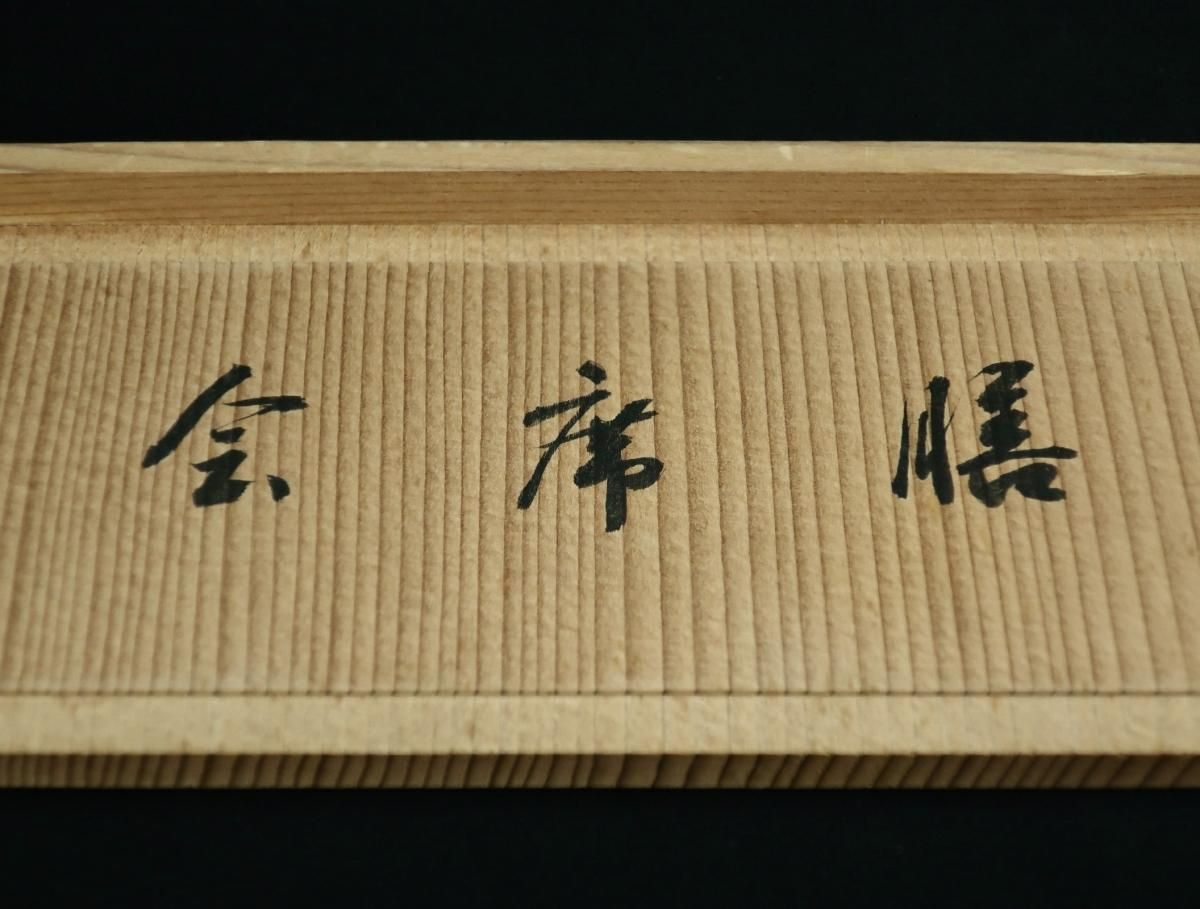 会席膳